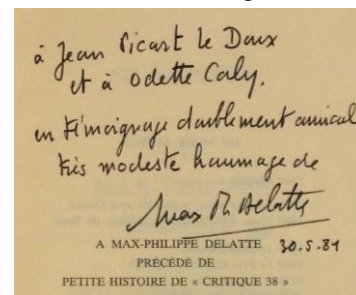 à Jean Picart le Doux
et à Odette Caly.
en témoignage doublement amical
très modeste hommage de
Max Ph Delatte
A MAX-PHILIPPE DELATTE 30.5.81
PRÉCÉDÉ DE
PETITE HISTOIRE DE « CRITIQUE 38 »